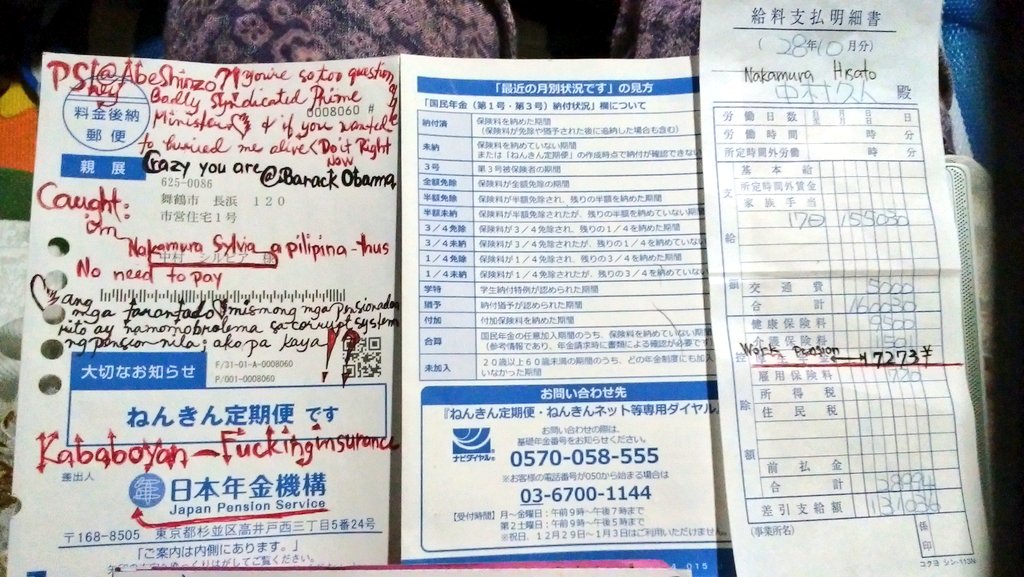 PS @AbeShinzo?! you're so too question
Badly Syndicated Prime
0008060 #
Minister & if you wanted
to buried me alive Do it Right
NOW
Crazy you are @Barack Obama
料金後納
郵便
親展
625-0086
舞鶴市 長浜 120
市営住宅1号
Caught:
Nakamura Sylvia a pilipina-thus
中村 シルビア 様
No need to pay
ang mga tarantado mismong mga pensionado
rito ay namomobrolema sa corrupt system
ng pension nila; ako pa kaya
大切なお知らせ
F/31-01-A-0008060
P/001-0008060
ねんきん定期便 です
Kababoyan - Fucking insurance
差出人
日本年金機構
Japan Pension Service
〒168-8505 東京都杉並区高井戸西三丁目5番24号
「ご案内は内側にあります。」
「最近の月別状況です」の見方
「国民年金(第1号・第3号)納付状況」欄について
納付済 保険料を納めた期間
(保険料が免除や猶予された後に追納した場合も含む)
未納 保険料を納めていない期間
または「ねんきん定期便」の作成時点で納付が確認できない
3号 第3号被保険者の期間
全額免除 保険料が全額免除の期間
半額免除 保険料が半額免除され、残りの半額を納めた期間
半額未納 保険料が半額免除されたが、残りの半額を納めていない期間
3/4免除 保険料が3/4免除され、残りの1/4を納めた期間
3/4未納 保険料が3/4免除されたが、残りの1/4を納めていない
1/4免除 保険料が1/4免除され、残りの3/4を納めた期間
1/4未納 保険料が1/4免除されたが、残りの3/4を納めていない
学特 学生納付特例が認められた期間
猶予 納付猶予が認められた期間
付加 付加保険料を納めた期間
合算 国民年金の任意加入期間のうち、保険料を納めていない期間
(参考情報であり、年金請求時に書類による確認が必要です
未加入 20歳以上60歳未満の期間のうち、どの年金制度にも加入
いなかった期間
お問い合わせ先
『ねんきん定期便・ねんきんネット等専用ダイヤル』
お問い合わせの際は、
基礎年金番号をお知らせください。
ナビダイヤル
0570-058-555
※お客様の電話番号が050から始まる場合は
03-6700-1144
【受付時間】月~金曜日:午前9時~午後7時まで
第2土曜日:午前9時~午後5時まで
※祝日、12月29日~1月3日はご利用いただけません
4 015
給料支払明細書
(28年10月分)
Nakamura Hisato
中村久人 殿
労働日数 日
労働時間 時 分
所定時間外労働 時 分
支給額
基本給
所定時間外賃金
家族手当
17日 155030
交通費 5000
合計 160030
控除額
健康保険料 9500
介護保険料
Work Pension → 7273¥
雇用保険料
所得税
住民税
前払金
合計 28994
差引支給額 131036
(事業所名)
係印
コクヨ シン-113N